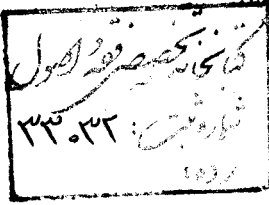 کتابخانه تخصصی فقه و اصول
شماره ثبت: ۳۳۰۳۲